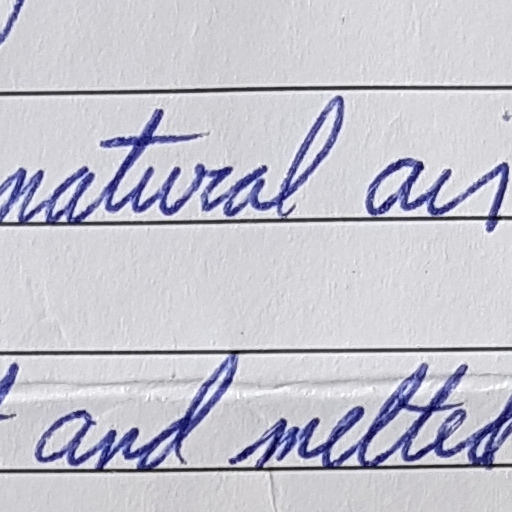 natural
and melted